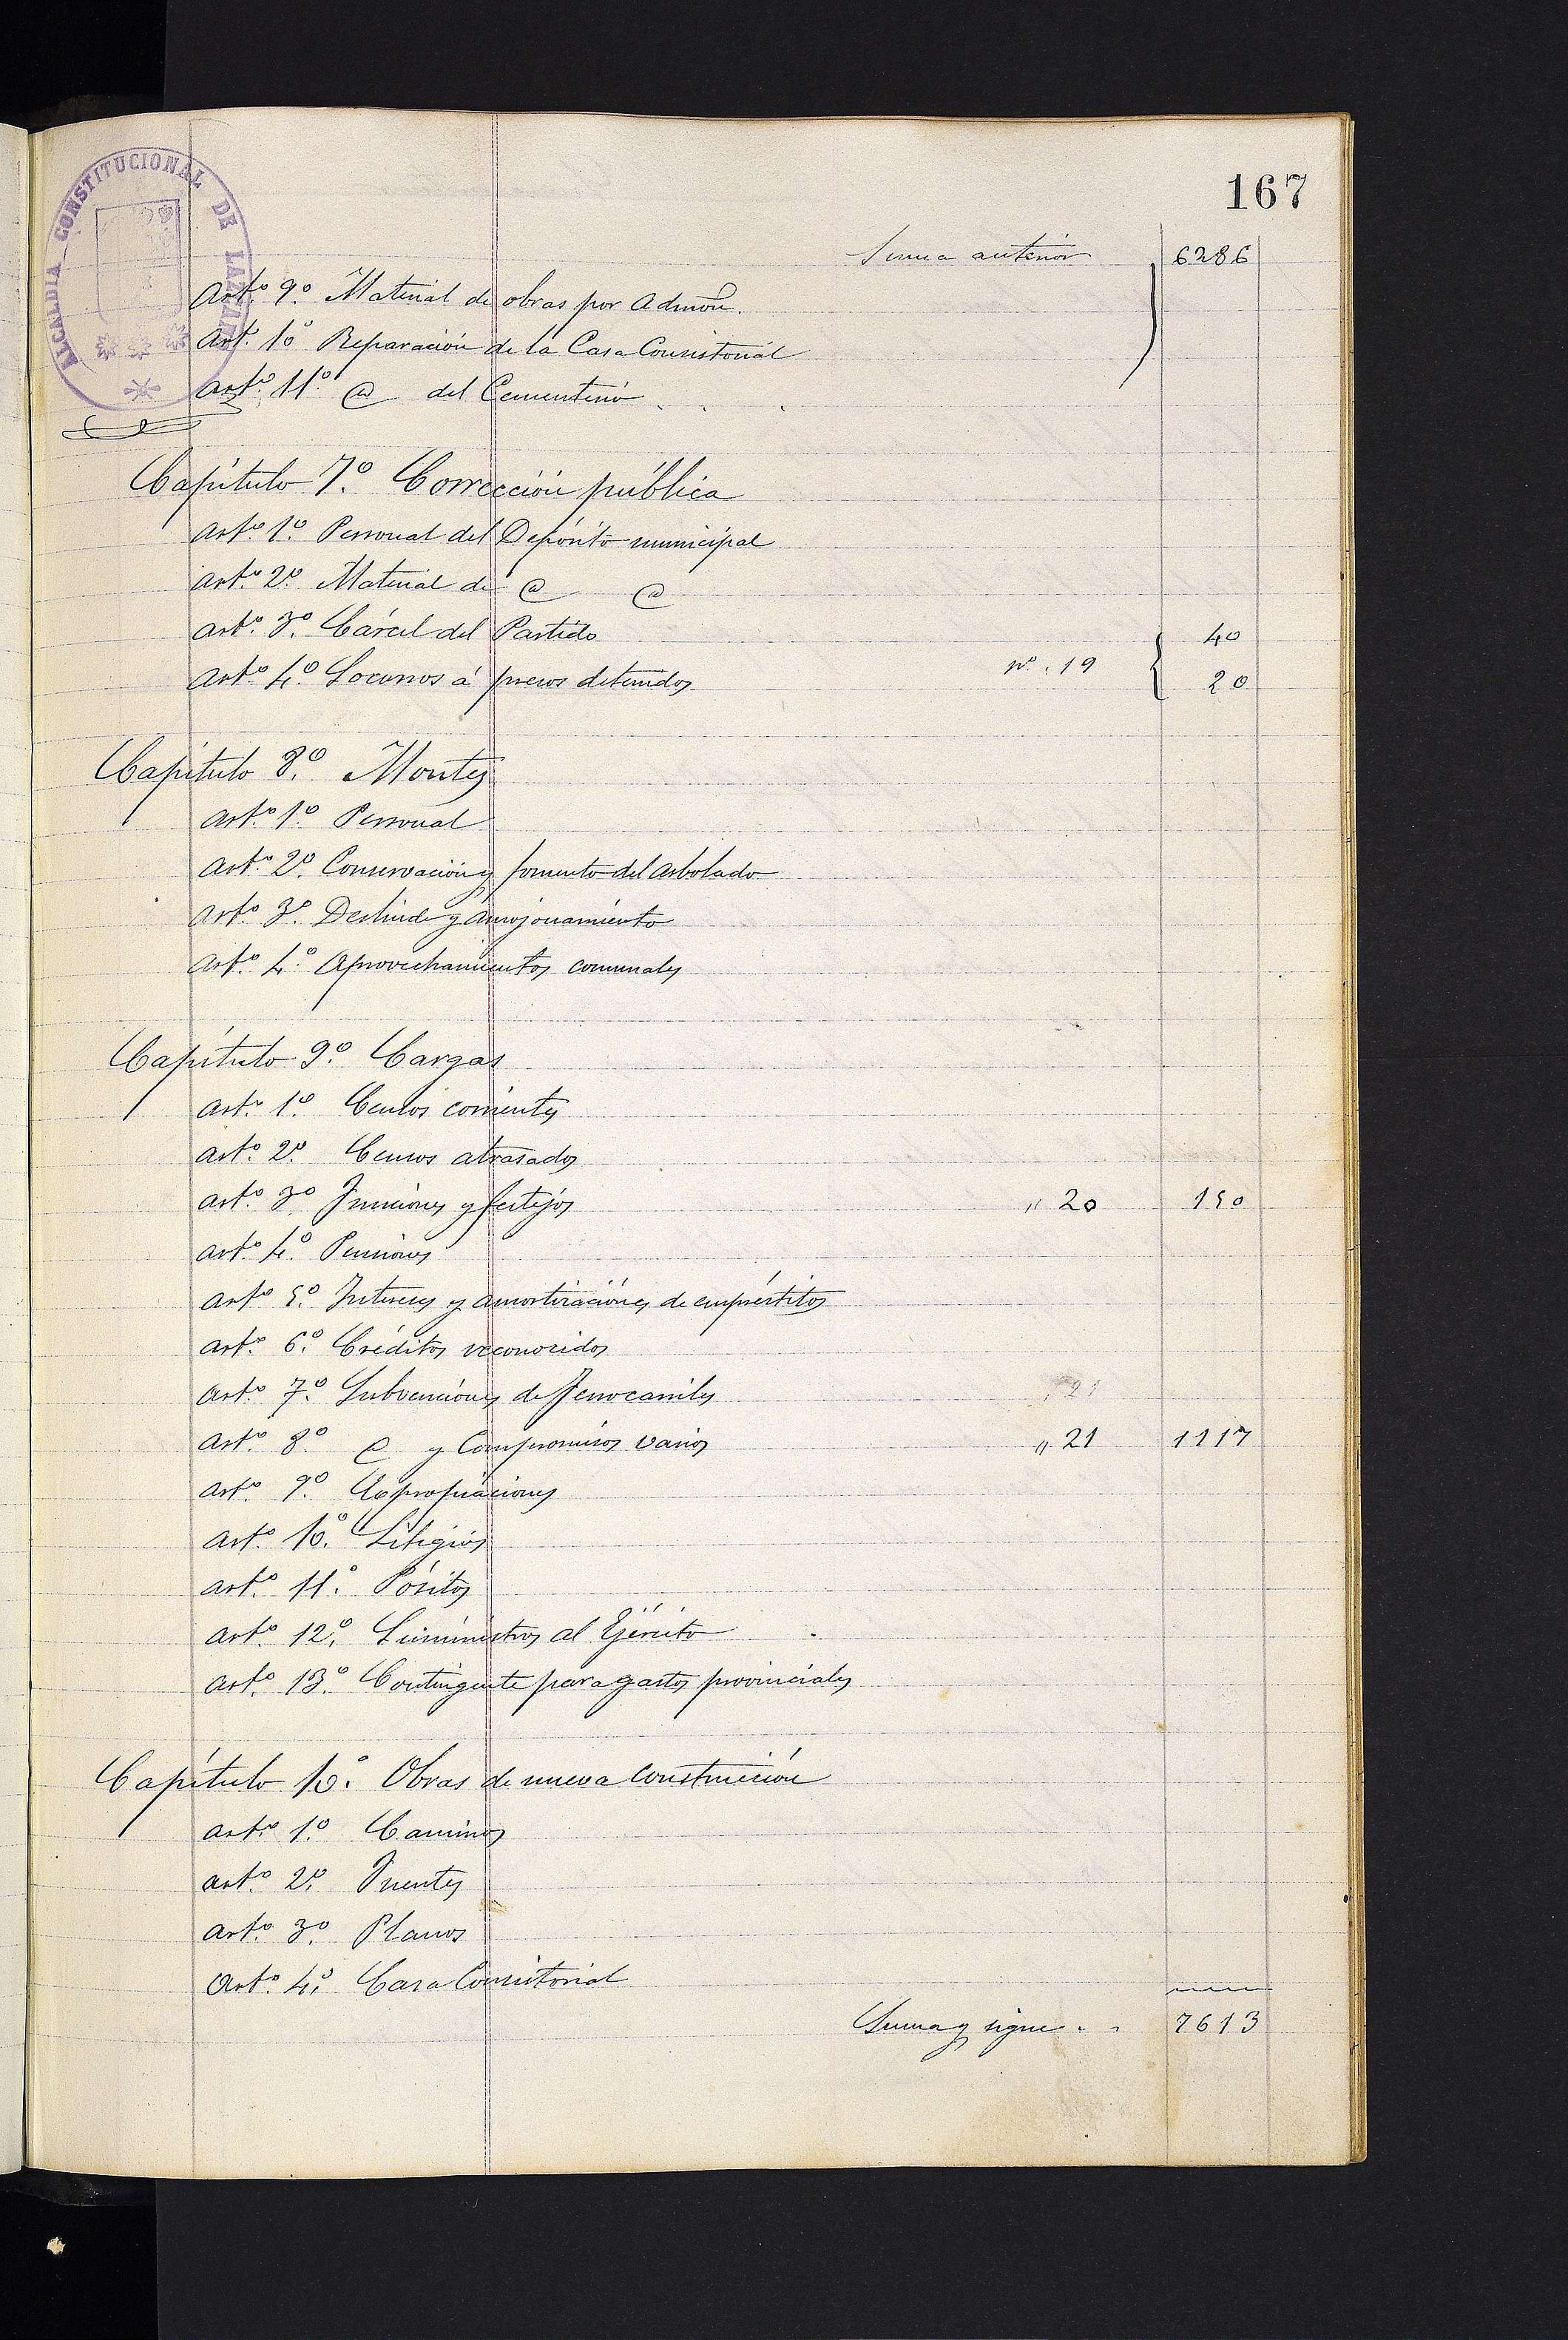 167
ALCALDIA CONSTITUCIONAL DE
Suma anterior 6286
Artº. 9º. Material de obras por Admón.
Artº. 10 Reparación de la Casa Consistorial
Artº. 11º. @ del Cementerio . . .
Capítulo 7º. Corrección pública
Artº. 1º. Personal del Depósito municipal
Artº. 2º. Material de @ @
Artº. 3º. Cárcel del Partido 40
Artº. 4º. Socorros á presos detenidos nº. 19 20
Capítulo 8º. Montes
Artº. 1º. Personal
Artº. 2º. Conservación y fomento del arbolado
Artº. 3º. Deslinde y amojonamiento
Artº. 4º. Aprovechamientos comunales
Capítulo 9º. Cargas
Artº. 1º. Censos corrientes
Artº. 2º. Censos atrasados
Artº. 3º Funciones y festejos " 20 150
Artº. 4º. Pensiones
Artº. 5º. Intereses y amortizaciones de empréstitos
Artº. 6º. Créditos reconocidos
Artº. 7º. Subvenciones de Ferrocarriles " 21
Artº. 8º. @ y Compromisos varios " 21 1117
Artº. 9º. Expropiaciones
Artº. 10º. Litigios
Artº. 11º. Pósitos
Artº. 12º. Suministros al Ejército
Artº. 13º. Contingente para gastos provinciales
Capítulo 10º. Obras de nueva construcción
Artº. 1º. Caminos
Artº. 2º. Puentes
Artº. 3º. Planos
Artº. 4º. Casa Consistorial
Suma y sigue . . 7613